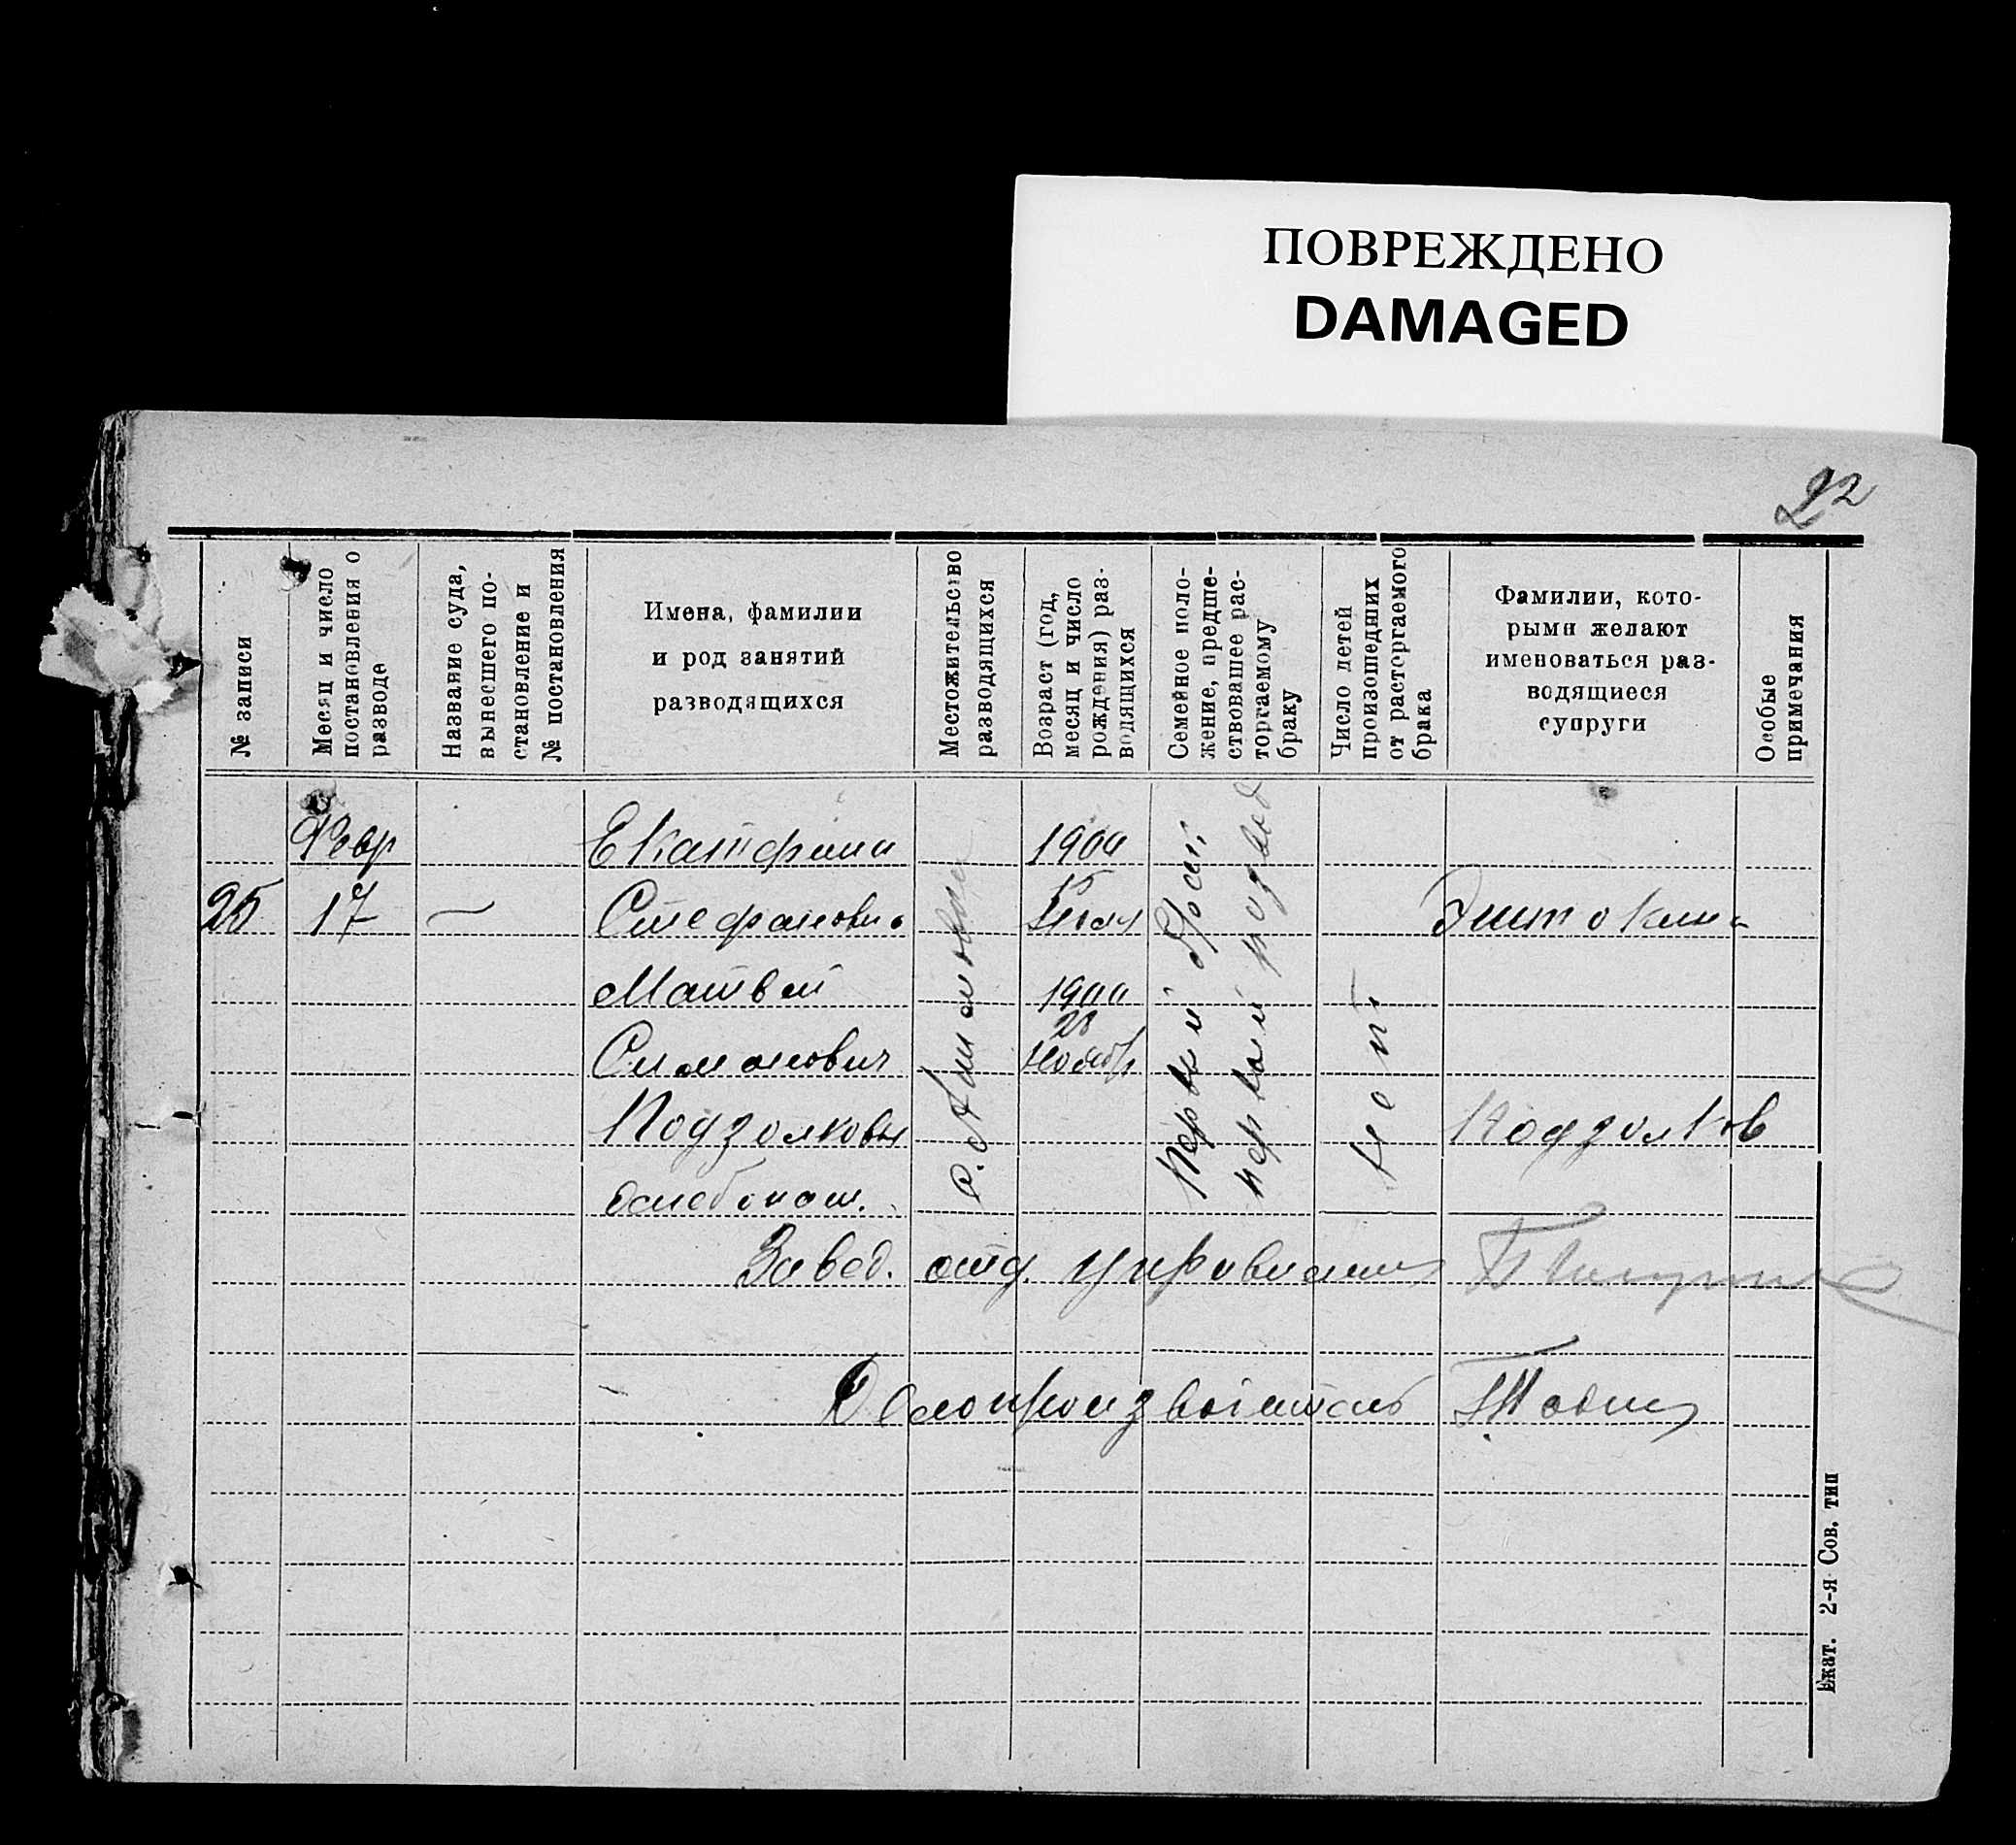 ПОВРЕЖДЕНО
DAMAGED
22
№ записи
Месяц и число
постановления о
разводе
Название суда,
вынесшего по-
становление и
№ постановления
Имена, фамилии
и род занятий
разводящихся
Местожительство
разводящихся
Возраст (год,
месяц и число
рождения) раз-
водящихся
Семейное поло-
жение, предше-
ствовавшее рас-
торгаемому
браку
Число детей
произошедших
от расторгаемого
брака
Фамилии, кото-
рыми желают
именоваться раз-
водящиеся
супруги
Особые
примечания
Февр
17
25
—
Екатерина
Стефановна
Матвей
Симонович
Подзолковы
хлебопаш.
1900
1900
28
Ноябр
Первый брак
первый развод
Нет
Подзолков
Завед. отд. управления
Делопроизводитель
Екат. 2-я Сов. тип